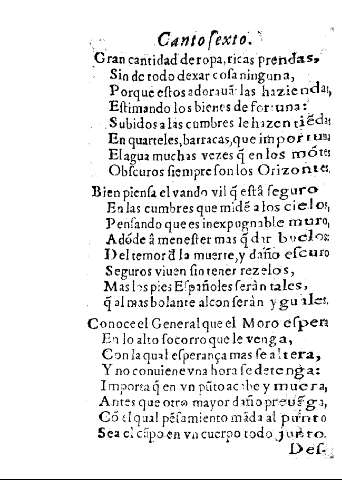 Canto ſexto.
Gran cantidad de ropa, ricas prendas,
Sin de todo dexar coſa ninguna,
Porque eſtos adorauã las haziendas,
Eſtimando los bienes de fortuna:
Subidos a las cumbres le hazen tiẽdas
En quarteles, barracas, que importuna
El agua muchas vezes q̃ en los mõtes
Obſcuros ſiempre ſon los Orizontes.
Bien pienſa el vando vil q̃ eſtâ ſeguro
En las cumbres que midẽ a los cielos,
Penſando que es inexpugnable muro,
Adõde â meneſter mas q̃ dar buelos:
Del temor đ la muerte, y daño eſcuro
Seguros viuen ſin tener rezelos,
Mas los pies Eſpañoles ſeràn tales,
q̃ al mas bolante alcon ſeràn yguales.
Conoce el General que el Moro eſpera
En lo alto ſocorro que le venga,
Con la qual eſperança mas ſe altera,
Y no conuiene vna hora ſe detenga:
Importa q̃ en vn pũto acabe y muera,
Antes que otro mayor daño preuẽga,
Cõ el qual pẽſamiento mãda al punto
Sea el cãpo en vn cuerpo todo junto.
Deſ-